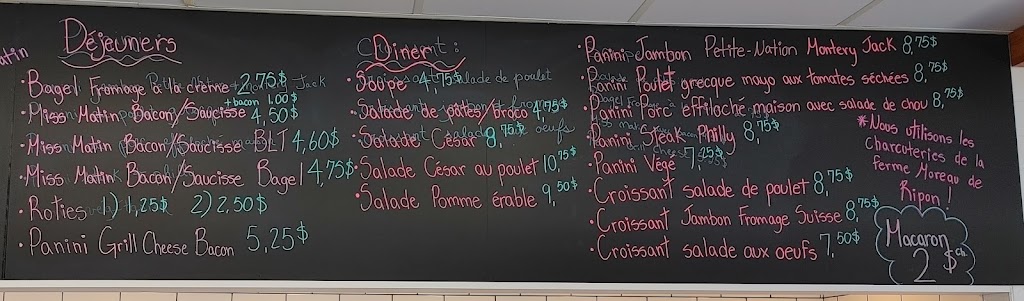 Déjeuners
• Bagel Fromage à la crème 2,75$
+ bacon 1.00$
• Miss Matin Bacon/Saucisse 4,50$
• Miss Matin Bacon/Saucisse BLT 4,60$
• Miss Matin Bacon/Saucisse Bagel 4,75$
• Roties 1) 1,25$ 2) 2,50$
• Panini Grill Cheese Bacon 5,25$
Diner
• Soupe 4,75$
• Salade de pâtes/broco 4,75$
• Salade César 8,75$
• Salade César au poulet 10,75$
• Salade Pomme érable 9,50$
• Panini Jambon Petite-Nation Montery Jack 8,75$
• Panini Poulet grecque mayo aux tomates séchées 8,75$
• Panini Porc effiloché maison avec salade de chou 8,75$
• Panini Steak Philly 8,75$
• Panini Végé 7,25$
• Croissant salade de poulet 8,75$
• Croissant Jambon Fromage Suisse 8,75$
• Croissant salade aux oeufs 7,50$
* Nous utilisons les
Charcuteries de la
ferme Moreau de
Ripon !
Macaron
2$ ch.